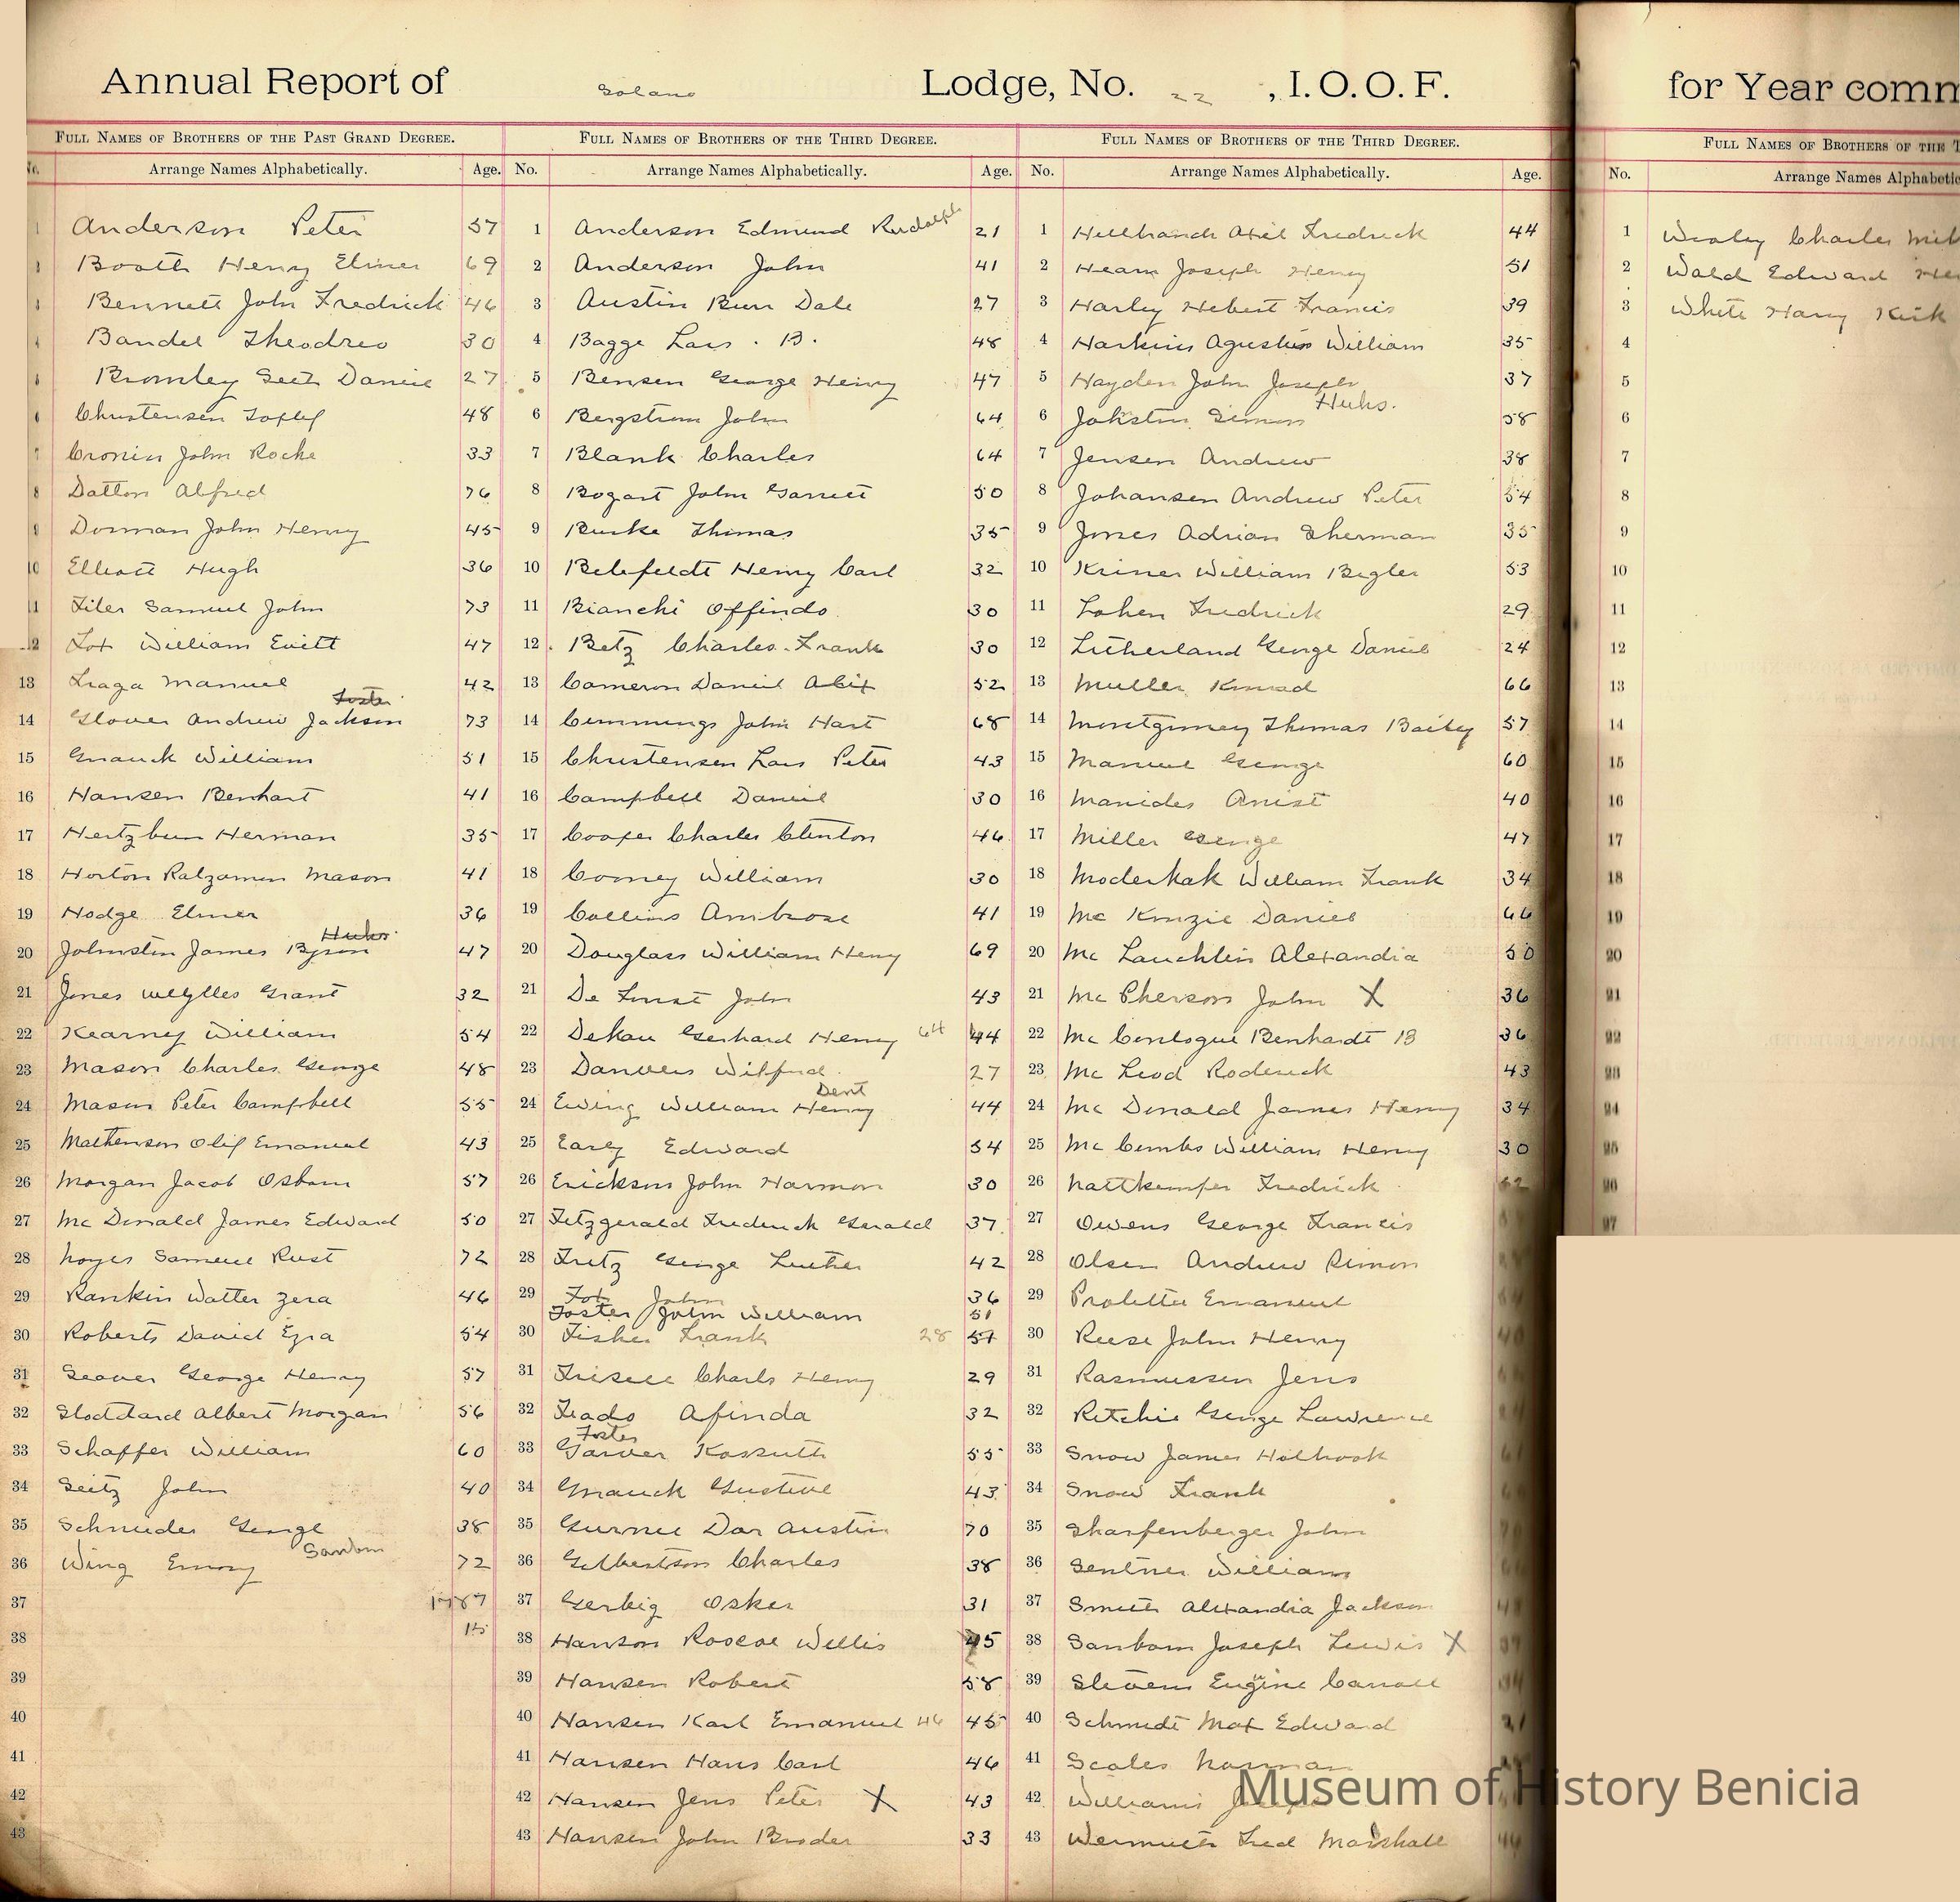 Annual Report of Solano Lodge, No. 22, I.O.O.F.
for Year comm
FULL NAMES OF BROTHERS OF THE PAST GRAND DEGREE.
No. Arrange Names Alphabetically. Age.
1 Anderson Peter 57
Booth Henry Elmer 69
Bennett John Fredrick 46
Bandel Theodreo 30
Bromley Seth Daniel 27
6 Christensen Toffef 48
7 Cronin John Roche 33
8 Dalton Alfred 76
Dorman John Henry 45
10 Elliott Hugh 36
11 Filer Samuel John 73
12 Fox William Evitt 47
13 Fraga Manuel 42
Foster
14 Glover Andrew Jackson 73
15 Gnauck William 51
16 Hansen Benhart 41
17 Hertzbun Herman 35
18 Horton Ralzamon Mason 41
19 Hodge Elmer 36
Huks.
20 Johnston James Byron 47
21 Jones Wellyles Grant 32
22 Kearney William 54
23 Mason Charles George 48
24 Mason Peter Campbell 55
25 Mathenson Olif Emanuel 43
26 Morgan Jacob Osborn 57
27 Mc Donald James Edward 50
28 Noyes Samuel Rust 72
29 Rankin Walter Zera 46
30 Roberts David Ezra 54
31 Seaver George Henry 57
32 Stoddard Albert Morgan 56
33 Schaffer William 60
34 Seitz John 40
35 Schnieder George 38
Sanborn
36 Wing Emory 72
37 1787
38
39
40
41
42
43
FULL NAMES OF BROTHERS OF THE THIRD DEGREE.
No. Arrange Names Alphabetically. Age.
1 Anderson Edmund Rudolph 21
2 Anderson John 41
3 Austin Burr Dale 27
4 Bagge Lars . B. 48
5 Bensen George Henry 47
6 Bergstrom John 64
7 Blank Charles 64
8 Bogart John Garrett 50
9 Burke Thomas 35
10 Belefeldt Henry Carl 32
11 Bianchi Offindo 30
12 Betz Charles Frank 30
13 Cameron Daniel Alex 52
14 Cummings John Hart 68
15 Christensen Lars Peter 43
16 Campbell Daniel 30
17 Cooper Charles Clinton 46
18 Cooney William 30
19 Collins Ambrose 41
20 Douglass William Henry 69
21 De Forest John 43
22 Dekau Gerhard Henry 64 44
23 Danvers Wilfred 27
Dent
24 Ewing William Henry 44
25 Early Edward 54
26 Erickson John Harmon 30
27 Fitzgerald Frederick Gerald 37
28 Fritz George Luther 42
29 Fox John 36
Foster John William 51
30 Fisher Frank 28 57
31 Frisell Charls Henry 29
32 Frado Afinda 32
Foster
33 Garver Kossuth 55
34 Gnauck Gustive 43
35 Gurnee Dar Austin 70
36 Gilbertson Charles 38
37 Gerbig Osker 31
38 Hanson Roscoe Willis 45
39 Hansen Robert 58
40 Hansen Karl Emanuel 46 45
41 Hansen Hans Carl 46
42 Hansen Jens Peter X 43
43 Hansen John Broder 33
FULL NAMES OF BROTHERS OF THE THIRD DEGREE.
No. Arrange Names Alphabetically. Age.
1 Hillbranch Axel Fredrick 44
2 Hearn Joseph Henry 51
3 Harley Hebert Francis 39
4 Harkins Agustus William 35
5 Hayden John Joseph 37
Huks.
6 Jokstin Simon 58
7 Jensen Andrew 38
8 Johansen Andrew Peter 54
9 Jones Adrian Sherman 35
10 Kriner William Bigler 53
11 Lohen Fredrick 29
12 Lutherland George Daniel 24
13 Muller Konrad 66
14 Montgomey Thomas Bailey 57
15 Manuel George 60
16 Manides Anist 40
17 Miller George 47
18 Moderhak William Frank 34
19 Mc Kinzie Daniel 66
20 Mc Lauchlin Alexandia 50
21 Mc Pherson John X 36
22 Mc Conlogue Benhardt B 36
23 Mc Leod Roderick 43
24 Mc Donald James Henry 34
25 Mc Combs William Henry 30
26 Nattkemper Fredrick 62
27 Owens George Francis
28 Olsen Andrew Simon
29 Proletta Emanuel
30 Reese John Henry
31 Rasmussen Jens
32 Ritchie George Lawrence
33 Snow James Holbrook
34 Snow Frank
35 Sharfenberger John
36 Sentner William
37 Smith Alexandia Jackson
38 Sanborn Joseph Lewis X
39 Stevens Eugine Carroll
40 Schmidt Max Edward 21
41 Scales Norman
42 Williams Joseph
43 Wermuth Fred Marshall
FULL NAMES OF BROTHERS OF THE T
No. Arrange Names Alphabetic
1 Wesley Charles
2 Wald Edward
3 White Harry Kirk
4
5
6
7
8
9
10
11
12
13
14
15
16
17
18
19
20
21
22
23
24
25
26
27
Museum of History Benicia